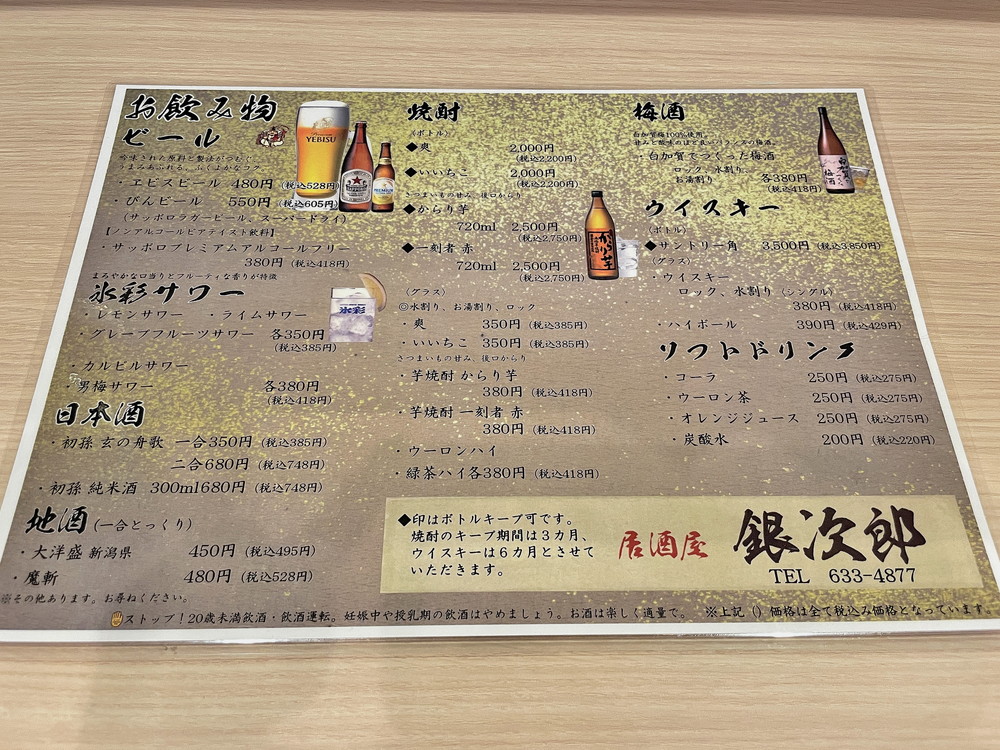 お飲み物
ビール
吟味された原料と製法がつむぐ、
うまみあふれる、ふくよかなコク
・ヱビスビール 480円 (税込528円)
・びんビール 550円 (税込605円)
(サッポロラガービール、スーパードライ)
【ノンアルコールビアテイスト飲料】
・サッポロプレミアムアルコールフリー
380円 (税込418円)
まろやかな口当りとフルーティな香りが特徴
氷彩サワー
・レモンサワー ・ライムサワー
・グレープフルーツサワー 各350円
(税込385円)
・カルピルサワー
・男梅サワー 各380円
(税込418円)
日本酒
・初孫 玄の舟歌 一合350円 (税込385円)
二合680円 (税込748円)
・初孫 純米酒 300ml680円 (税込748円)
地酒 (一合とっくり)
・大洋盛 新潟県 450円 (税込495円)
・魔斬 480円 (税込528円)
※その他あります。お尋ねください。
YEBISU
氷彩
焼酎
(ボトル)
◆爽 2,000円
(税込2,200円)
◆いいちこ 2,000円
(税込2,200円)
さつまいもの甘み、後口からり
◆からり芋
720ml 2,500円
(税込2,750円)
◆一刻者 赤
720ml 2,500円
(税込2,750円)
(グラス)
◎水割り、お湯割り、ロック
・爽 350円 (税込385円)
・いいちこ 350円 (税込385円)
さつまいもの甘み、後口からり
・芋焼酎 からり芋
380円 (税込418円)
・芋焼酎 一刻者 赤
380円 (税込418円)
・ウーロンハイ
・緑茶ハイ各380円 (税込418円)
からり芋
梅酒
白加賀梅100%使用。
甘みと酸味のほど良いバランスの梅酒。
・白加賀でつくった梅酒
ロック、水割り、
お湯割り 各380円
(税込418円)
白加賀
梅酒
ウイスキー
(ボトル)
◆サントリー角 3,500円 (税込3,850円)
(グラス)
・ウイスキー
ロック、水割り (シングル)
380円 (税込418円)
・ハイボール 390円 (税込429円)
ソフトドリンク
・コーラ 250円 (税込275円)
・ウーロン茶 250円 (税込275円)
・オレンジジュース 250円 (税込275円)
・炭酸水 200円 (税込220円)
◆印はボトルキープ可です。
焼酎のキープ期間は3カ月、
ウイスキーは6カ月とさせて
いただきます。
居酒屋 銀次郎
TEL 633-4877
ストップ!20歳未満飲酒・飲酒運転。妊娠中や授乳期の飲酒はやめましょう。お酒は楽しく適量で。 ※上記()価格は全て税込み価格となっています